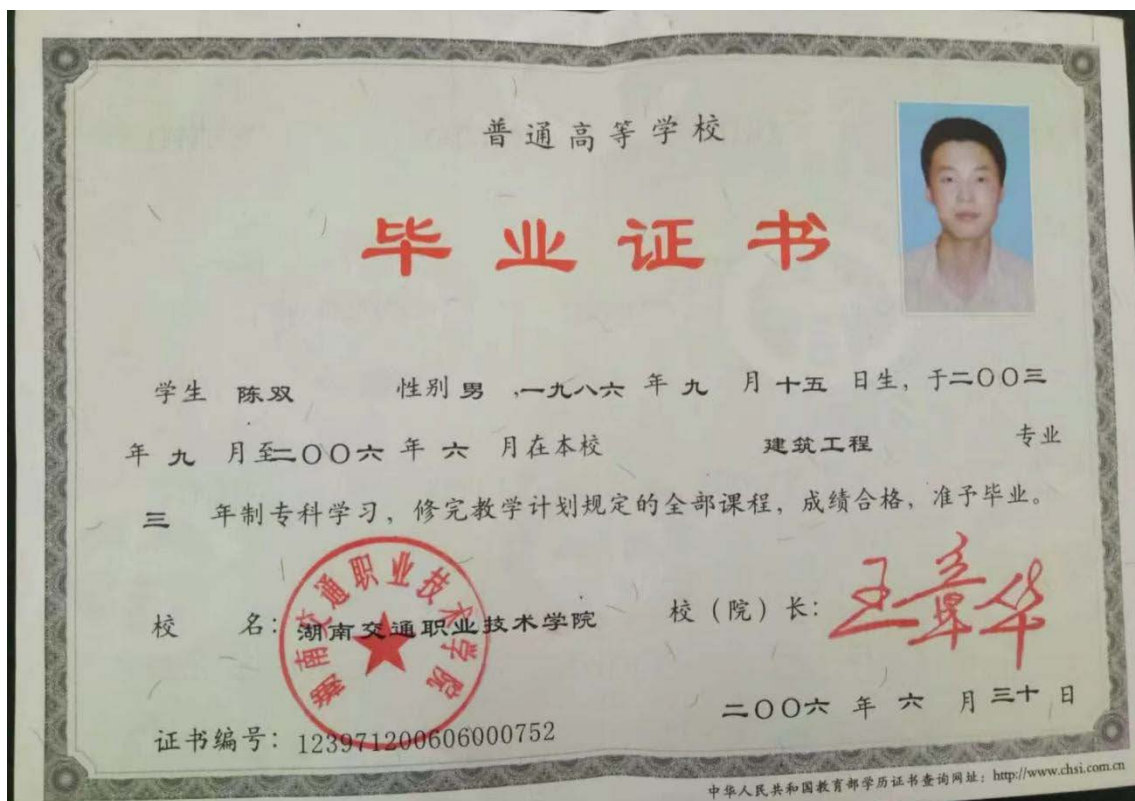 普通高等学校
毕业证书
学生 陈双 性别 男 ,一九八六 年 九 月 十五 日生, 于二〇〇三
年 九 月至二〇〇六 年 六 月在本校 建筑工程 专业
三 年制专科学习, 修完教学计划规定的全部课程, 成绩合格, 准予毕业。
湖南交通职业技术学院
校 名: 湖南交通职业技术学院 校 (院) 长: 王章华
二〇〇六 年 六 月 三十 日
证书编号: 123971200606000752
中华人民共和国教育部学历证书查询网址: http://www.chsi.com.cn